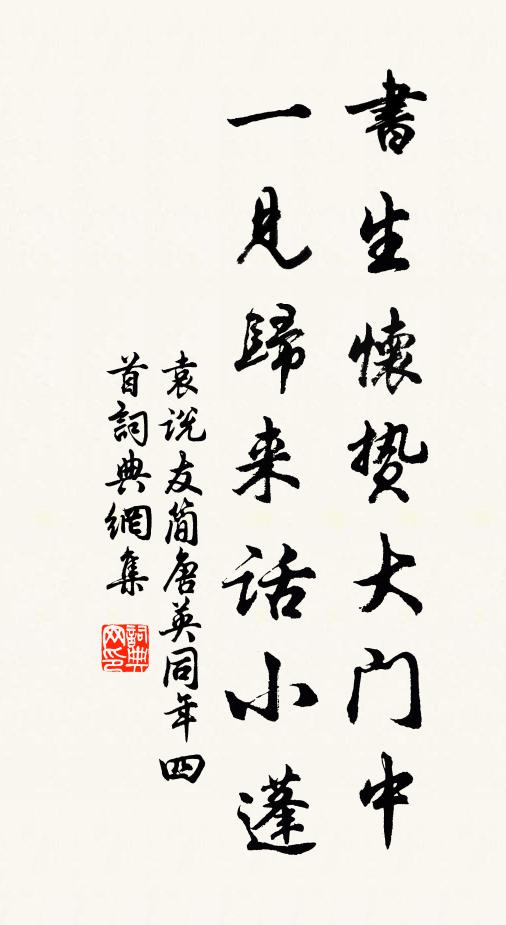 書生懷贄大門中
一見歸来話小蓬
袁说友简唐英同年四
首詞典網集
詞典
网印